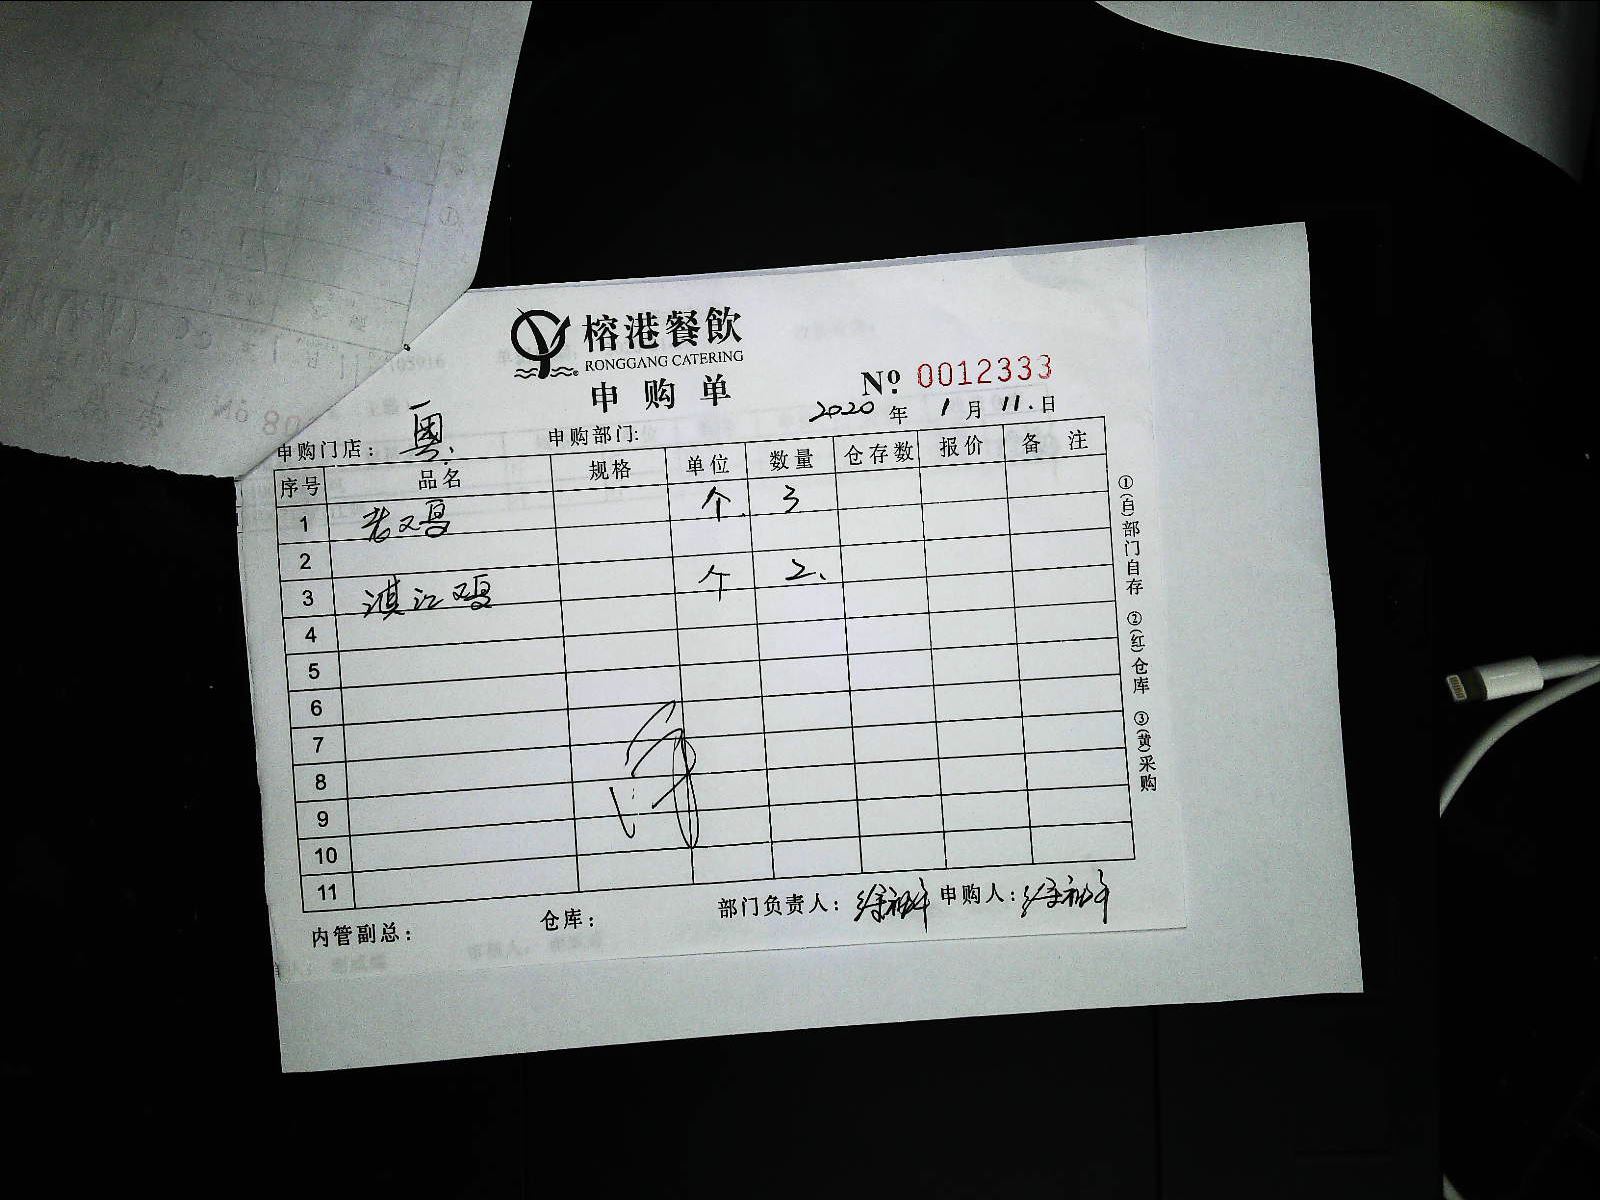 榕港餐飲
RONGGANG CATERING
申购单
№ 0012333
2020 年 1 月 11 日
申购门店： 粤 申购部门:
序号 品名 规格 单位 数量 仓存数 报价 备 注
1 老鸡 个 3
2
3 湛江鸡 个 2
4
5
6
7
8
9
10
11
内管副总： 仓库： 部门负责人： 申购人：
①(白)部门自存 ②(红)仓库 ③(黄)采购